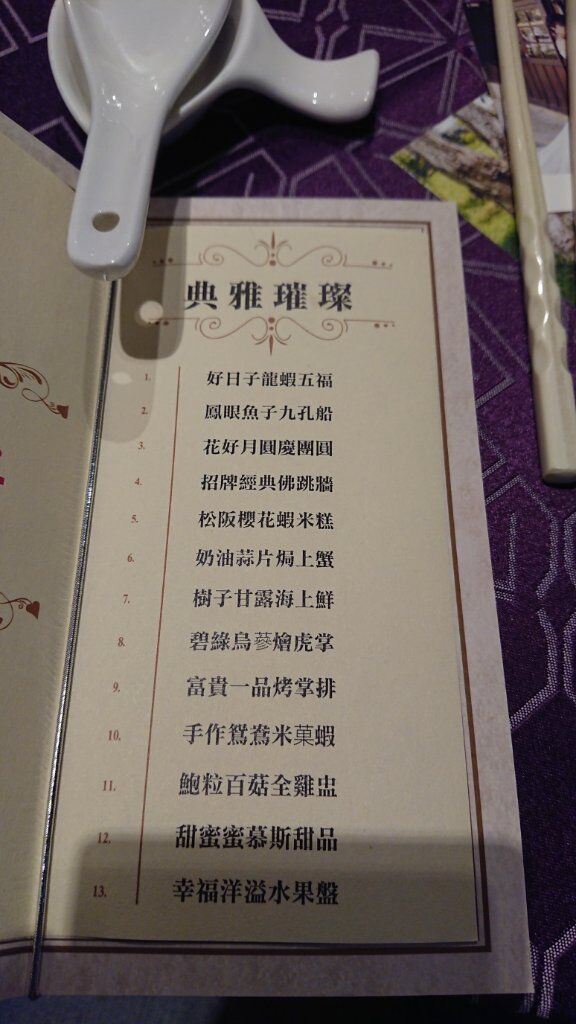 典雅璀璨
1. 好日子龍蝦五福
2. 鳳眼魚子九孔船
3. 花好月圓慶團圓
4. 招牌經典佛跳牆
5. 松阪櫻花蝦米糕
6. 奶油蒜片焗上蟹
7. 樹子甘露海上鮮
8. 碧綠烏蔘燴虎掌
9. 富貴一品烤掌排
10. 手作鴛鴦米菓蝦
11. 鮑粒百菇全雞盅
12. 甜蜜蜜慕斯甜品
13. 幸福洋溢水果盤